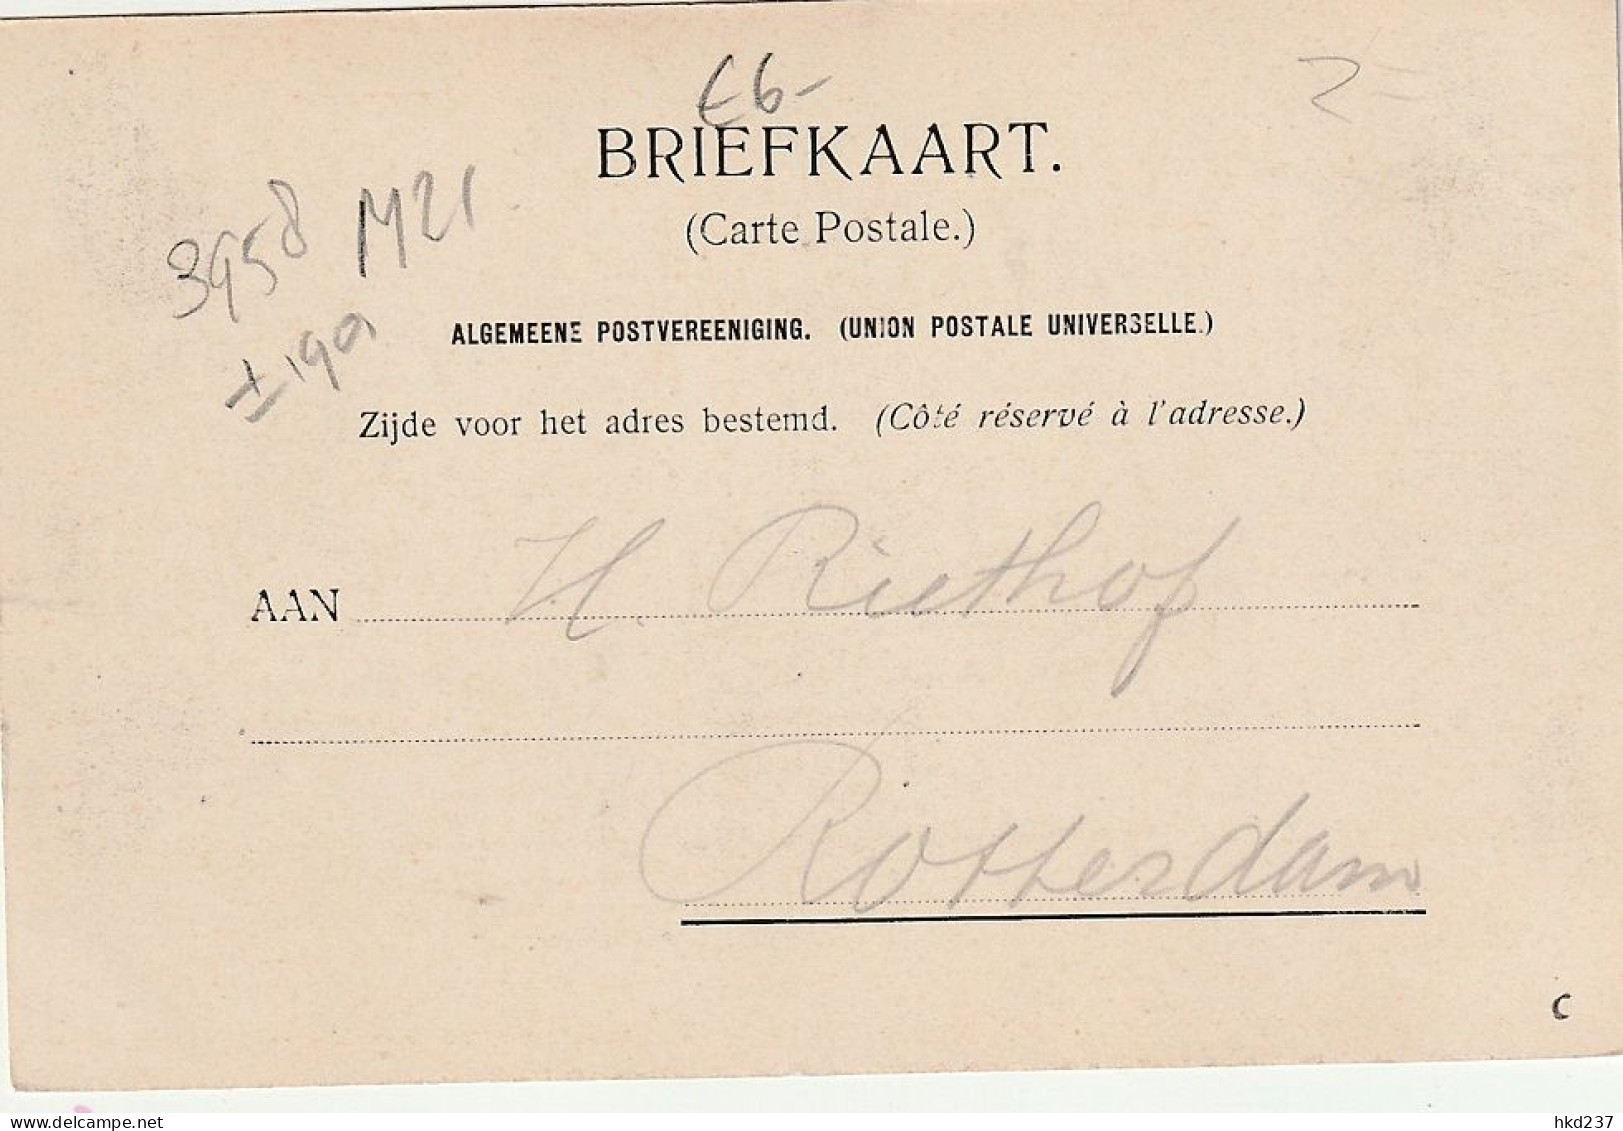 €6-
2-
BRIEFKAART.
(Carte Postale.)
3958 M21
ALGEMEENE POSTVEREENIGING. (UNION POSTALE UNIVERSELLE.)
Zijde voor het adres bestemd. (Côté réservé à l'adresse.)
AAN H. Riethof
Rotterdam
C
hkd237